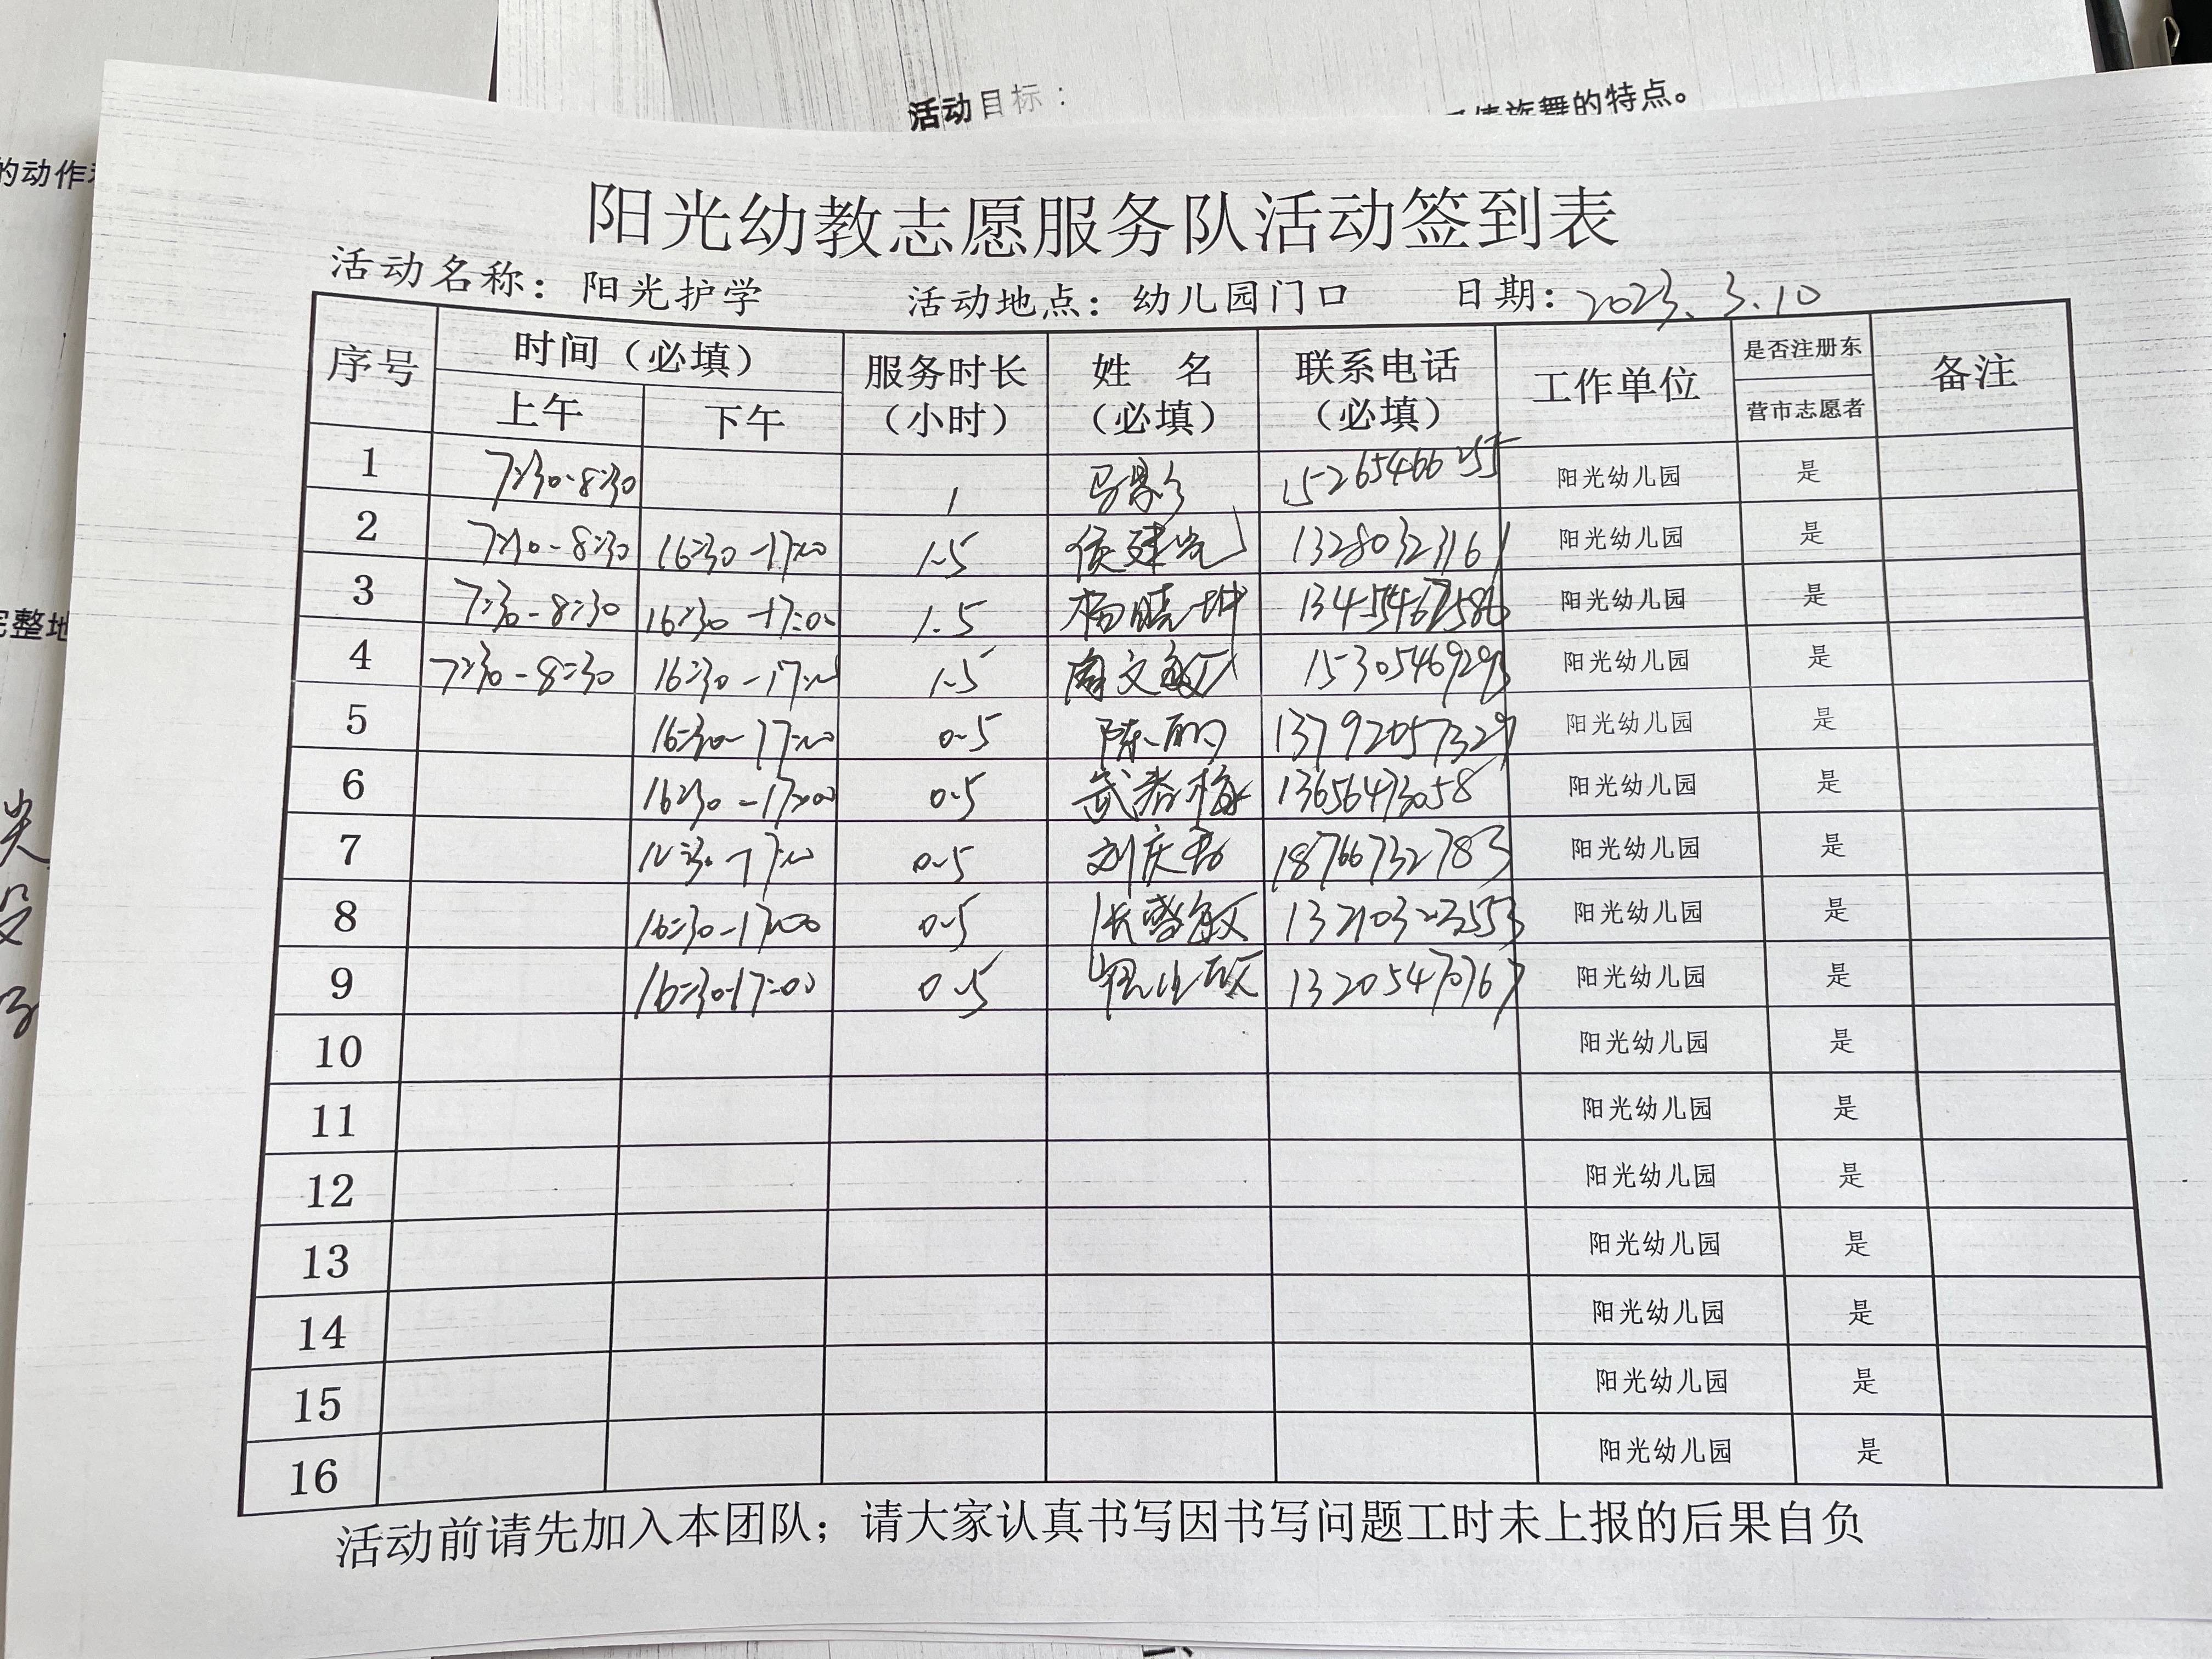 活动目标：
的特点。
的动作
完整地
阳光幼教志愿服务队活动签到表
活动名称：阳光护学 活动地点：幼儿园门口 日期：2023.3.10
序号 时间（必填） 服务时长（小时） 姓 名（必填） 联系电话（必填） 工作单位 是否注册东营市志愿者 备注
上午 下午
1 7:30-8:30 1 阳光幼儿园 是
2 7:30-8:30 16:30-17:00 1.5 侯建光 13280323161 阳光幼儿园 是
3 7:30-8:30 16:30-17:00 1.5 杨晓坤 13455467586 阳光幼儿园 是
4 7:30-8:30 16:30-17:00 1.5 周文敏 15305469293 阳光幼儿园 是
5 16:30-17:00 0.5 陈丽 13792057329 阳光幼儿园 是
6 16:30-17:00 0.5 武春梅 13656473058 阳光幼儿园 是
7 16:30-17:00 0.5 18766732783 阳光幼儿园 是
8 16:30-17:00 0.5 13210323553 阳光幼儿园 是
9 16:30-17:00 0.5 13205470767 阳光幼儿园 是
10 阳光幼儿园 是
11 阳光幼儿园 是
12 阳光幼儿园 是
13 阳光幼儿园 是
14 阳光幼儿园 是
15 阳光幼儿园 是
16 阳光幼儿园 是
活动前请先加入本团队；请大家认真书写因书写问题工时未上报的后果自负